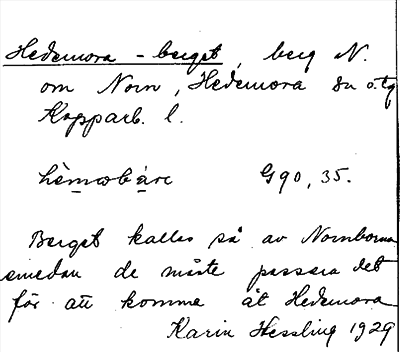 Hedemora-berget, berg N.
om Norn, Hedemora sn o. tg
Kopparb. l.
hèmωbære G90, 35.
Berget kallas så av Nornborna
emedan de måste passera det
för att komma åt Hedemora
Karin Hessling 1929